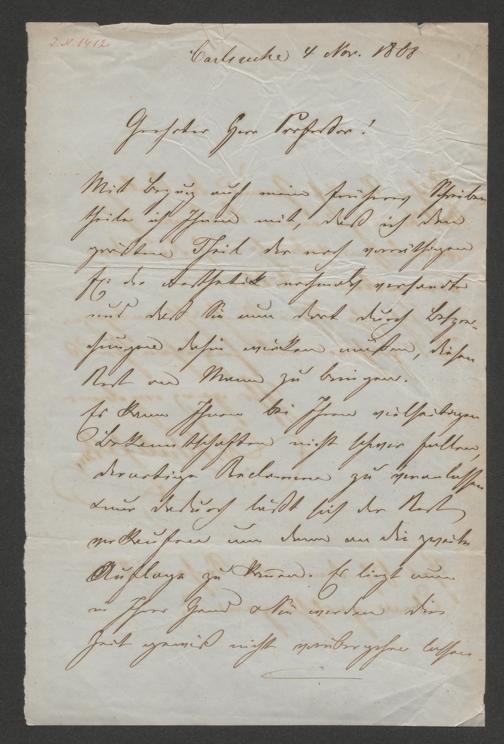 J.N. 1412
Carlsruhe 4 Nov. 1868
Geehrter Herr Professor!
Mit Bezug auf mein früheres Schreiben
theile ich Ihnen mit, daß ich den
größten Theil der noch vorräthigen
Ex. der Aesthetik nochmals versandte
und daß Sie nun dort durch Besprechungen
dahin wirken müßen, diesen
Rest an Mann zu bringen.
Es kann Ihnen bei Ihren vielseitigen
Bekanntschaften nicht schwer fallen,
derartige Reclamen zu veranlassen
& nur dadurch läßt sich der Rest
verkaufen um dann an die zweite
Auflage zu kommen. Es liegt nun
in Ihrer Hand & Sie werden die
Zeit gewiß nicht vorübergehen lassen.